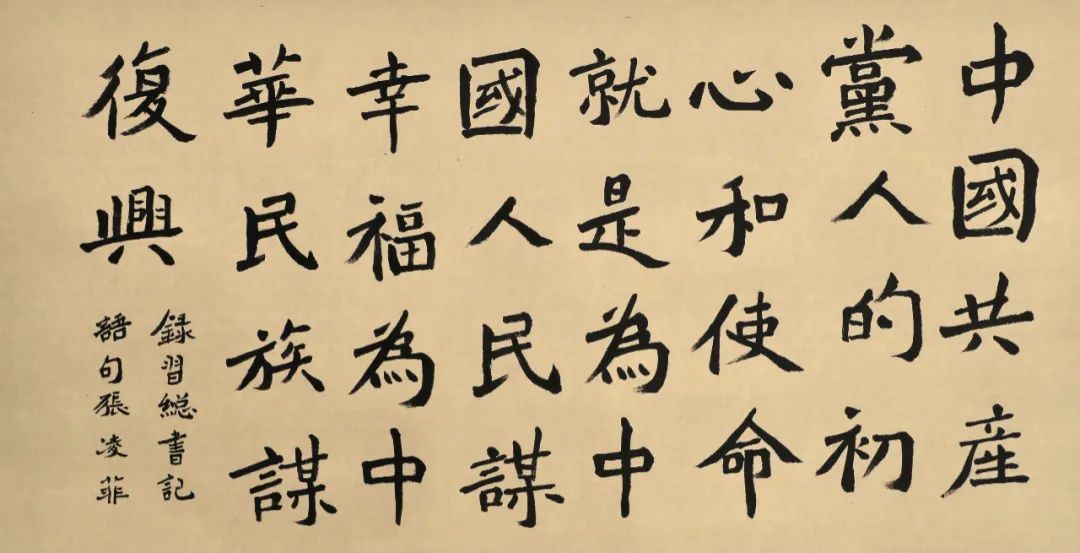 中國共產
黨人的初
心和使命
就是為中
國人民謀
幸福為中
華民族謀
復興
錄習總書記
語句張凌菲